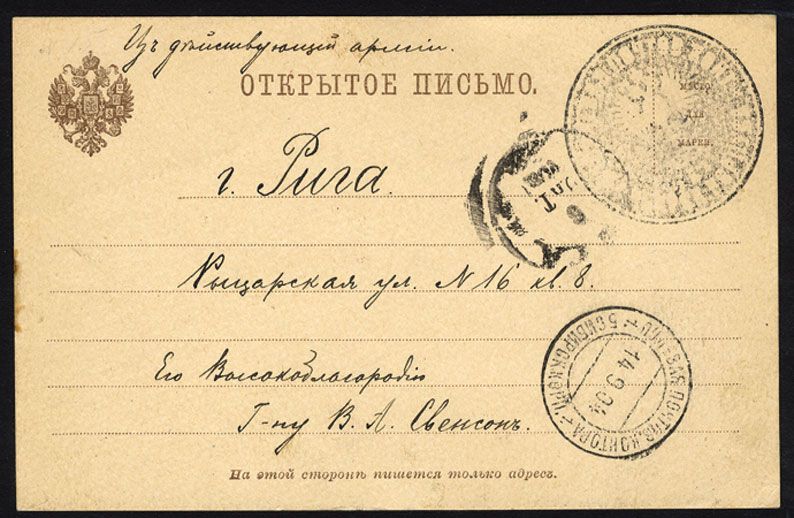 Изъ дѣйствующей арміи.
ОТКРЫТОЕ ПИСЬМО.
МѢСТО
ДЛЯ
МАРКИ.
г. Рига.
Рыцарская ул. N 16 кв. 8.
Его Высокоблагородію
Г-ну В. А. Свенсонъ.
14 9 04
На этой сторонѣ пишется только адресъ.